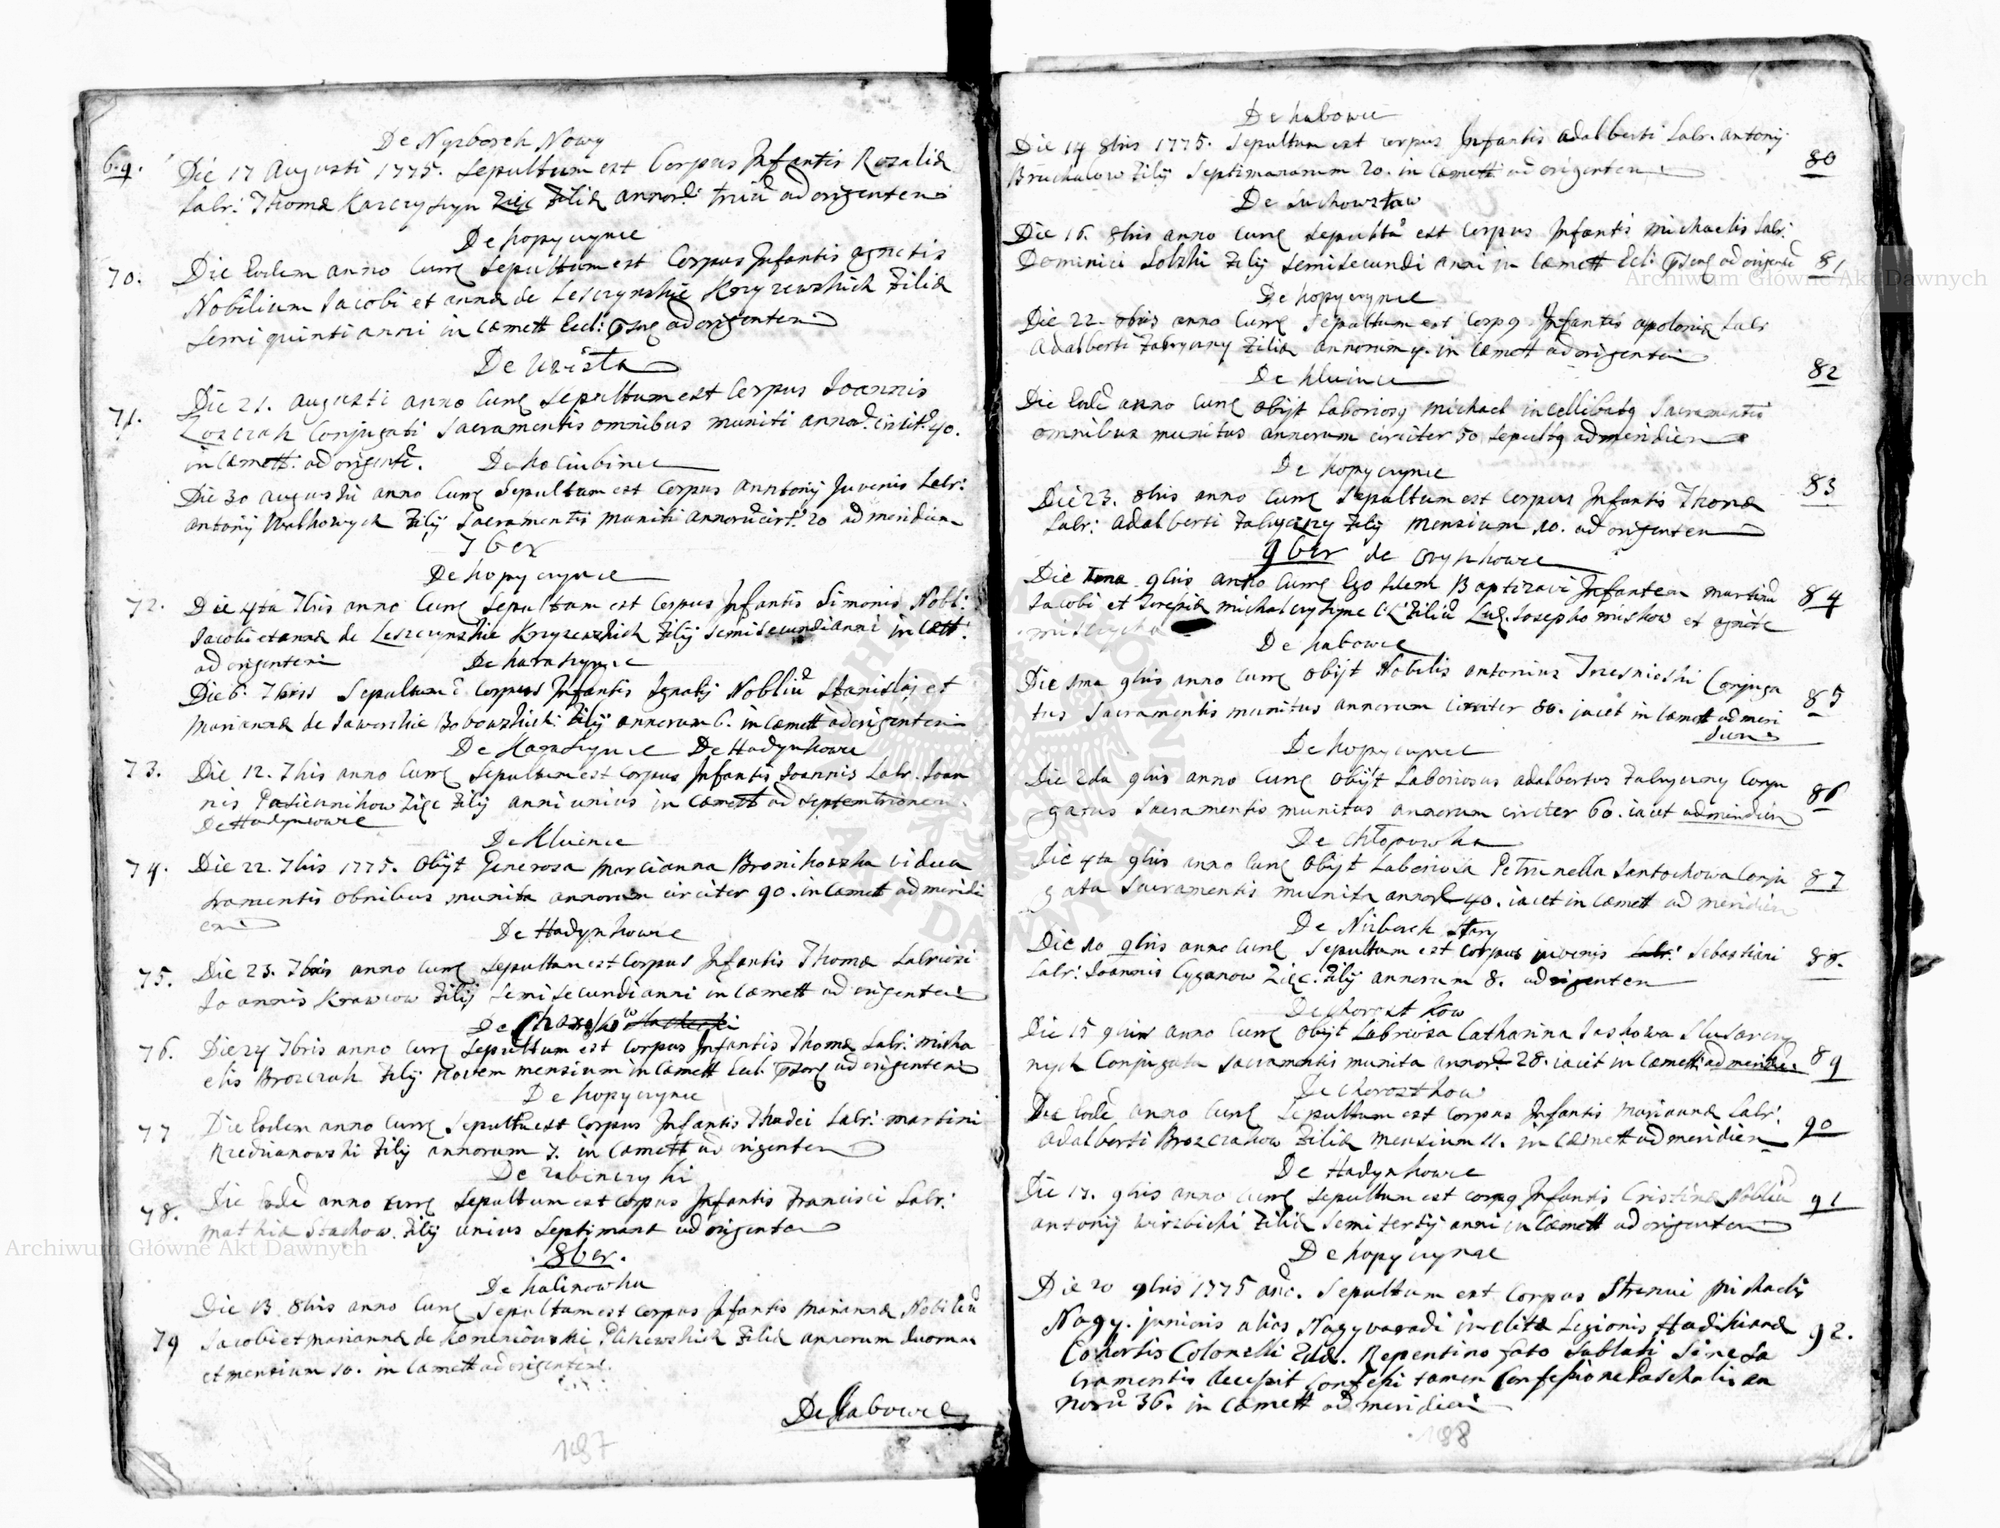 De Nyzborch Nowy
69. Die 17 Augusti 1775. Sepultum est Corpus Infantis Rozaliæ
Labr: Thomæ Karczyszyn Zięć Filiæ annor: triũ ad orientem
De Kopyczynce
70. Die Eodem anno Curre Sepultum est Corpus Infantis Agnetis
Nobilium Jacobi et Annæ de Lesczynskie Krzyzewskich Filiæ
Semi quinti anni in Cæmett Eccl: ad orientem
De Uwisła
71. Die 21. Augusti anno Curre Sepultum est Corpus Joannis
Conjugati Sacramentis omnibus muniti annor. circit. 40.
in Cæmett: ad orientẽ. De Kociubince
Die 30 Augusti anno Curre Sepultum est Corpus Anntonij Juvenis Labr:
Antonij Wołkowych Filij Sacramentis muniti annorũ circit. 20 ad meridiem
7ber
De Kopyczynce
72. Die 4ta 7bris anno Curre Sepultum est Corpus Infantis Simonis Nobl:
Jacobi et Annæ de Leszczynskie Krzyzewskich Filij Semisecundi anni in Cætt:
ad orientem De Karaszynce
Die 6. 7bris Sepultum ẽ Corpus Infantis Ignatij Nobliũ Stanislai et
Mariannæ de Jaworskie Bobowskich Filij annorum 6. in Cæmett ad orientem
De Karaszynce De Hadynkowce
73. Die 12. 7bris anno Curre Sepultum est Corpus Infantis Joannis Labr. Joan
nis Pasiecznikow Zięć Filij anni unius in Cæmett ad Septemtrionem
De Hadynkowce
De Kluince
74. Die 22. 7bris 1775. Obijt Generosa Marcianna Bronikowska vidua
cramentis obnibus munita annorum circiter 90. in Cæmett ad meridi
em
De Hadynkowce
75. Die 23. 7bris anno Curre Sepultum est Corpus Infantis Thomæ Labriosi
Joannis Krawcow Filij Semisecundi anni in Cæmett ad orientem
De
76. Die 24 7bris anno Curre Sepultum est Corpus Infantis Thomæ Labr: Micha
elis Brozczak Filij Novem mensium in Cæmett Eccl. ad orientem
De Kopyczynce
77 Die Eodem anno Curre Sepultũ est Corpus Infantis Thadei Labr: Martini
Rzedzianowski Filij annorum 7. in Cæmett ad orientem
De Rabinczyki
78. Die Eodẽ anno Curre Sepultum est Corpus Infantis Francisci Labr:
Mathiæ Stachow. Filij unius Septimanæ ad orientem
8ber.
De Kalinowka
79 Die 13 8bris anno Curre Sepultum est Corpus Infantis Mariannæ Nobiliũ
Jacobi et Mariannæ de Filiæ annorum duorum
et mensium 10. in Cæmett ad orientem.
De Kabowce
187
De Kabowce
Die 14 8bris 1775. Sepultum est Corpus Infantis Adalberti Labr. Antonij
Bruchalow Filij Septimanarum 20. in Cæmett ad orientem 80
De Suchowstaw
Die 16. 8bris anno Curre Sepultũ est Corpus Infantis Michaelis Labr:
Dominici Solski Filij Semisecundi anni in Cæmett Eccl: ad orientẽ 81
De Kopyczynce
Die 22. 8bris anno Curre Sepultum est Corpq Infantis Apoloniæ Labr
Adalberti Zabyczny Filiæ annorum 4. in Cæmett ad orientem 82
De Kluince
Die Eodẽ anno Curre Obijt Laboriosq Michael in Cellibatq Sacramentis
omnibus munitus annorum circiter 50 Sepultq ad meridiem
De Kopyczynce
Die 23. 8bris anno Curre Sepultum est Corpus Infantis Thomæ 83
Labr: Adalberti Zabyczny Filij Mensium 10. ad orientem
9ber de Oryszkowce
Die 1ma 9bris anno Curre Ego Idem Baptizavi Infantem Martinũ
Jacobi et Josephæ Filiũ Josepho Miskow et Agnete 84
De Kabowce
Die 1ma 9bris anno Curre Obijt Nobilis Antonius Trzesnieski Conjuga
tus Sacramentis munitus annorum circiter 80. jacet in Cæmett ad meri 85
diem
De Kopyczynce
Die 2da 9bris anno Curre Obijt Laboriosus Adalbertus Zabyczny Conju
gatus Sacramentis munitus annorum circiter 60. iacet ad meridiem 86
De Chłopowka
Die 4ta 9bris anno Curre Obijt Laboriosa Petrunella Santochowa Conju
gata Sacramentis munita annor 40. iacet in Cæmett ad meridiem 87
De Nizborch Stary
Die 10 9bris anno Curre Sepultum est Corpus juvenis Labr: Sebastiani
Labr: Joannis Cyganow Zięć. Filij annorum 8. ad orientem 88.
De Chorostkow
Die 15 9bris anno Curre Obijt Labriosa Catharina Saskowa Slusarczy
nych Conjugata Sacramentis munita annor. 28. iacet in Cæmett ad meridie. 89
De Chorostkow
Die Eodẽ anno Curre Sepultum est Corpus Infantis Mariannæ Labr:
Adalberti Brozczakow Filiæ mensium 11. in Cæmett ad meridiem 90
De Hadynkowce
Die 17. 9bris anno Curre Sepultum est Corpq Infantis Cristinæ Nobliũ 91
Antonij Wirzbicki Filiæ Semitertij anni in Cæmett ad orientem
De Kopyczynce
Die 20 9bris 1775 anc. Sepultum est Corpus Strenui Michaelis
Nagy. junioris alias Nagyvaradi inclitæ Legionis Hadikianæ 92.
Cohortis Colonelli Repentino fato Sublati Sine Sa
cramentis decesit Confessi tamen Confessione Paschali an
norũ 36. in Cæmett ad meridiem
188
Archiwum Główne Akt Dawnych
Archiwum Główne Akt Dawnych
ARCHIWUM GŁÓWNE AKT DAWNYCH